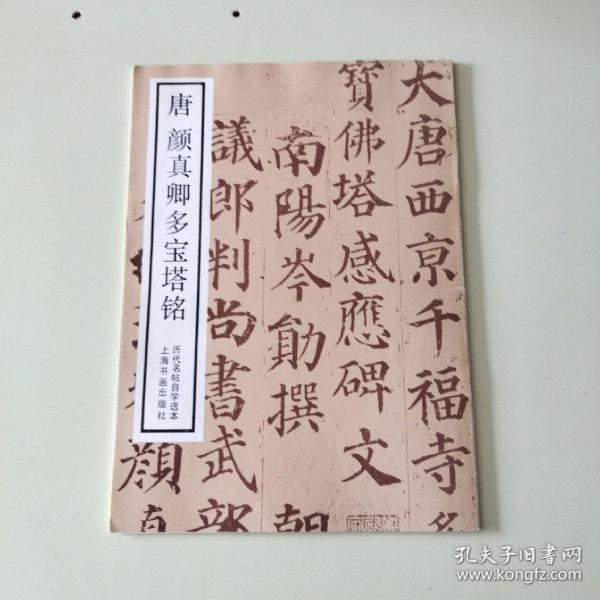 唐 颜真卿多宝塔铭
历代名帖自学选本
上海书画出版社
大唐西京千福寺多
寶佛塔感應碑文
南陽岑勛撰
朝
議郎判尚書武部
顔真
孔夫子旧书网
www.kongfz.com